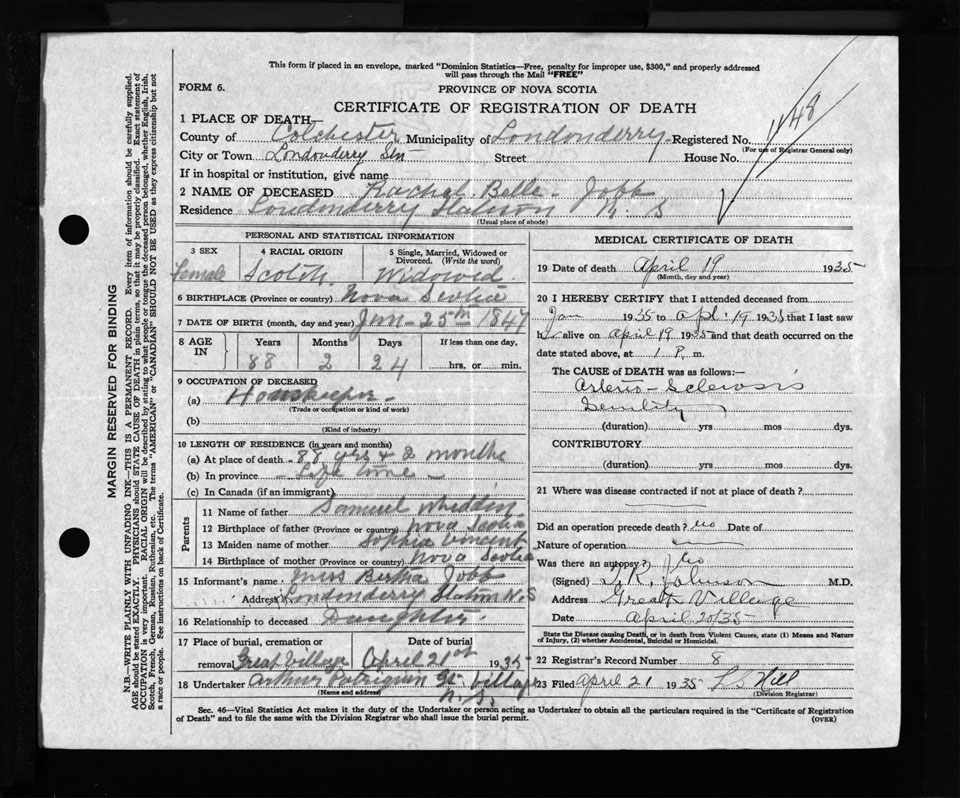 This form if placed in an envelope, marked "Dominion Statistics—Free, penalty for improper use, $300," and properly addressed
will pass through the Mail "FREE"
FORM 6.
PROVINCE OF NOVA SCOTIA
CERTIFICATE OF REGISTRATION OF DEATH
1 PLACE OF DEATH—
County of Colchester Municipality of Londonderry Registered No. 448
(For use of Registrar General only)
City or Town Londonderry Stn Street House No.
If in hospital or institution, give name
2 NAME OF DECEASED Rachel Belle Jobb
Residence Londonderry Station N. S
(Usual place of abode)
PERSONAL AND STATISTICAL INFORMATION
3 SEX Female
4 RACIAL ORIGIN Scotch
5 Single, Married, Widowed or Divorced. (Write the word) Widowed
6 BIRTHPLACE (Province or country) Nova Scotia
7 DATE OF BIRTH (month, day and year) Jan - 25th 1847
8 AGE IN Years Months Days If less than one day,
88 2 24 hrs. or min.
9 OCCUPATION OF DECEASED
(a) Housekeeper
(Trade or occupation or kind of work)
(b)
(Kind of industry)
10 LENGTH OF RESIDENCE (in years and months)
(a) At place of death 88 yrs & 2 months
(b) In province Life time
(c) In Canada (if an immigrant)
Parents
11 Name of father Samuel Whidden
12 Birthplace of father (Province or country) Nova Scotia
13 Maiden name of mother Sophia Vincent
14 Birthplace of mother (Province or country) Nova Scotia
15 Informant's name Miss Bertha Jobb
Address Londonderry Station N.S
16 Relationship to deceased Daughter
17 Place of burial, cremation or removal Great Village Date of burial April 21st 1935
18 Undertaker Arthur Gt. Village
N.S.
(Name and address)
MEDICAL CERTIFICATE OF DEATH
19 Date of death April 19 1935
(Month, day and year)
20 I HEREBY CERTIFY that I attended deceased from
Jan 1935 to Apl. 19 1935 that I last saw
alive on April 19 1935 and that death occurred on the
date stated above, at 1 P. m.
The CAUSE of DEATH was as follows:—
Arterio-Sclerosis
Senility
(duration) yrs mos dys.
CONTRIBUTORY.
(duration) yrs mos dys.
21 Where was disease contracted if not at place of death?
Did an operation precede death? no Date of
Nature of operation
Was there an autopsy? No
(Signed) Johnson M.D.
Address Great Village
Date April 20/35
State the Disease causing Death, or in death from Violent Causes, state (1) Means and Nature
of Injury, (2) whether Accidental, Suicidal or Homicidal.
22 Registrar's Record Number 8
23 Filed April 21 1935 Hill
(Division Registrar)
Sec. 46—Vital Statistics Act makes it the duty of the Undertaker or person acting as Undertaker to obtain all the particulars required in the "Certificate of Registration
of Death" and to file the same with the Division Registrar who shall issue the burial permit.
(OVER)
MARGIN RESERVED FOR BINDING
N.B.—WRITE PLAINLY WITH UNFADING INK—THIS IS A PERMANENT RECORD. Every item of information should be carefully supplied.
AGE should be stated EXACTLY. PHYSICIANS should STATE CAUSE OF DEATH in plain terms, so that it may be properly classified. Exact statement of
OCCUPATION is very important. RACIAL ORIGIN will be described by stating to what people or tongue the deceased person belonged, whether English, Irish,
Scotch, French, German, Russian, Ruthenian, etc. The terms "AMERICAN" or "CANADIAN" SHOULD NOT BE USED as they express citizenship but not
a race or people. See instructions on back of Certificate.